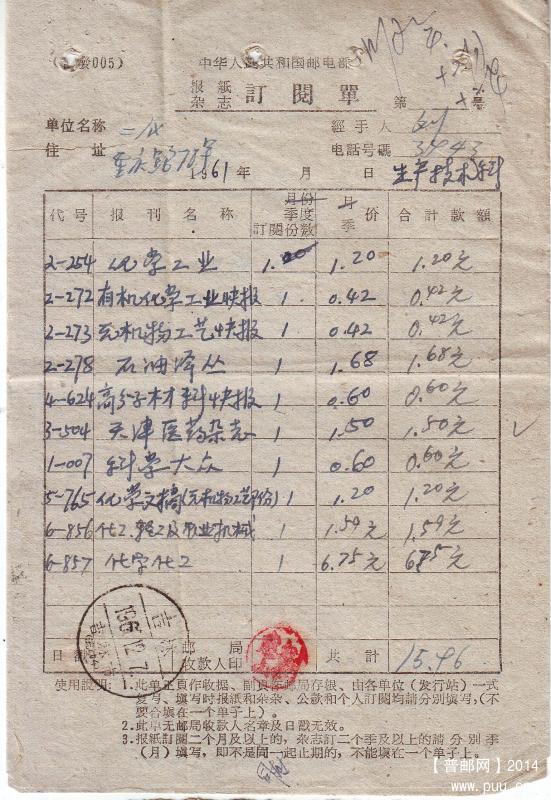 005)
中华人民共和国邮电部
报紙
杂志 訂閱單 第 号
單位名称 經手人
住 址 电話号碼 3443
1961年 月 日 生产技术科
代号 报刊名称 月份 季度 訂閱份數 月 季 价 合計款額
2-254 化学工业 1. 1.20 1.20元
2-272 有机化学工业快报 1 0.42 0.42元
2-273 无机物工艺快报 1 0.42 0.42元
2-278 石油译丛 1 1.68 1.68元
4-624 高分子材料快报 1 0.60 0.60元
3-504 天津医药杂志 1 1.50 1.50元
1-007 科学大众 1 0.60 0.60元
5-765 化学文摘(无机物工艺部份) 1 1.20 1.20元
6-856 化工 及 机械 1 1.59元 1.59元
6-857 化学化工 1 6.75元 6.75元
日 邮局 收款人印 共計 15.96
使用說明：1.此单正頁作收据、副頁作邮局存根、由各单位（发行站）一式
复写、填写时报紙和杂志、公款和个人訂閱均請分別填写，（不
要合填在一个单子上）。
2.此单无邮局收款人名章及日戳无效。
3.报紙訂閱二个月及以上的，杂志訂二个季及以上的請分別季
（月）填写，即不是同一起止期的，不能填在一个单子上。
【普邮网】2014
www.puu.com